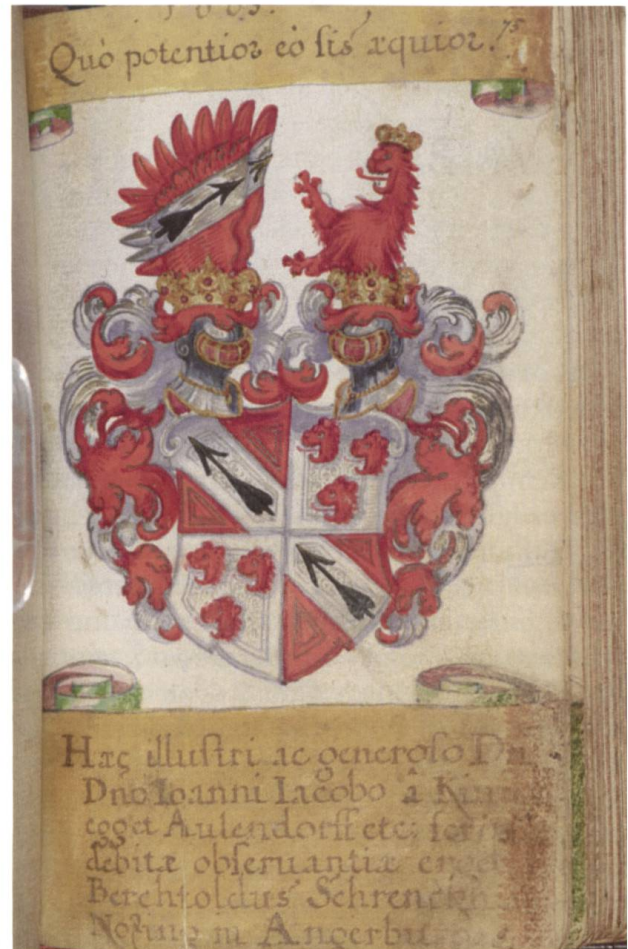 1605.
Quò potentior eò sis æquior. 75
Hæc illustri ac generoso Dn
Dno Ioanni Iacobo à
egg et Aulendorff etc:
debitæ obseruantiæ ergo
Berchtoldus Schrenckh
Nozing in